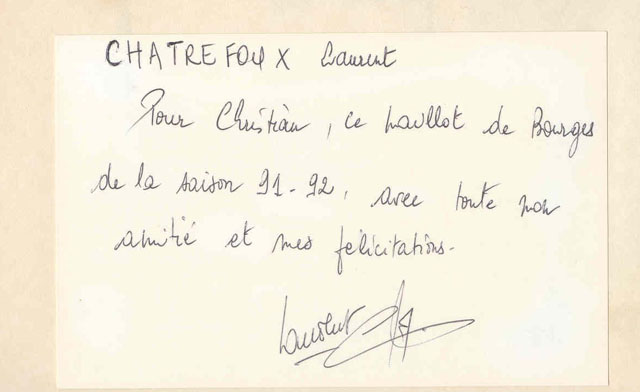 CHATREFOUX Laurent
Pour Christian, ce maillot de Bourges
de la saison 91-92, avec toute mon
amitié et mes félicitations.
Laurent